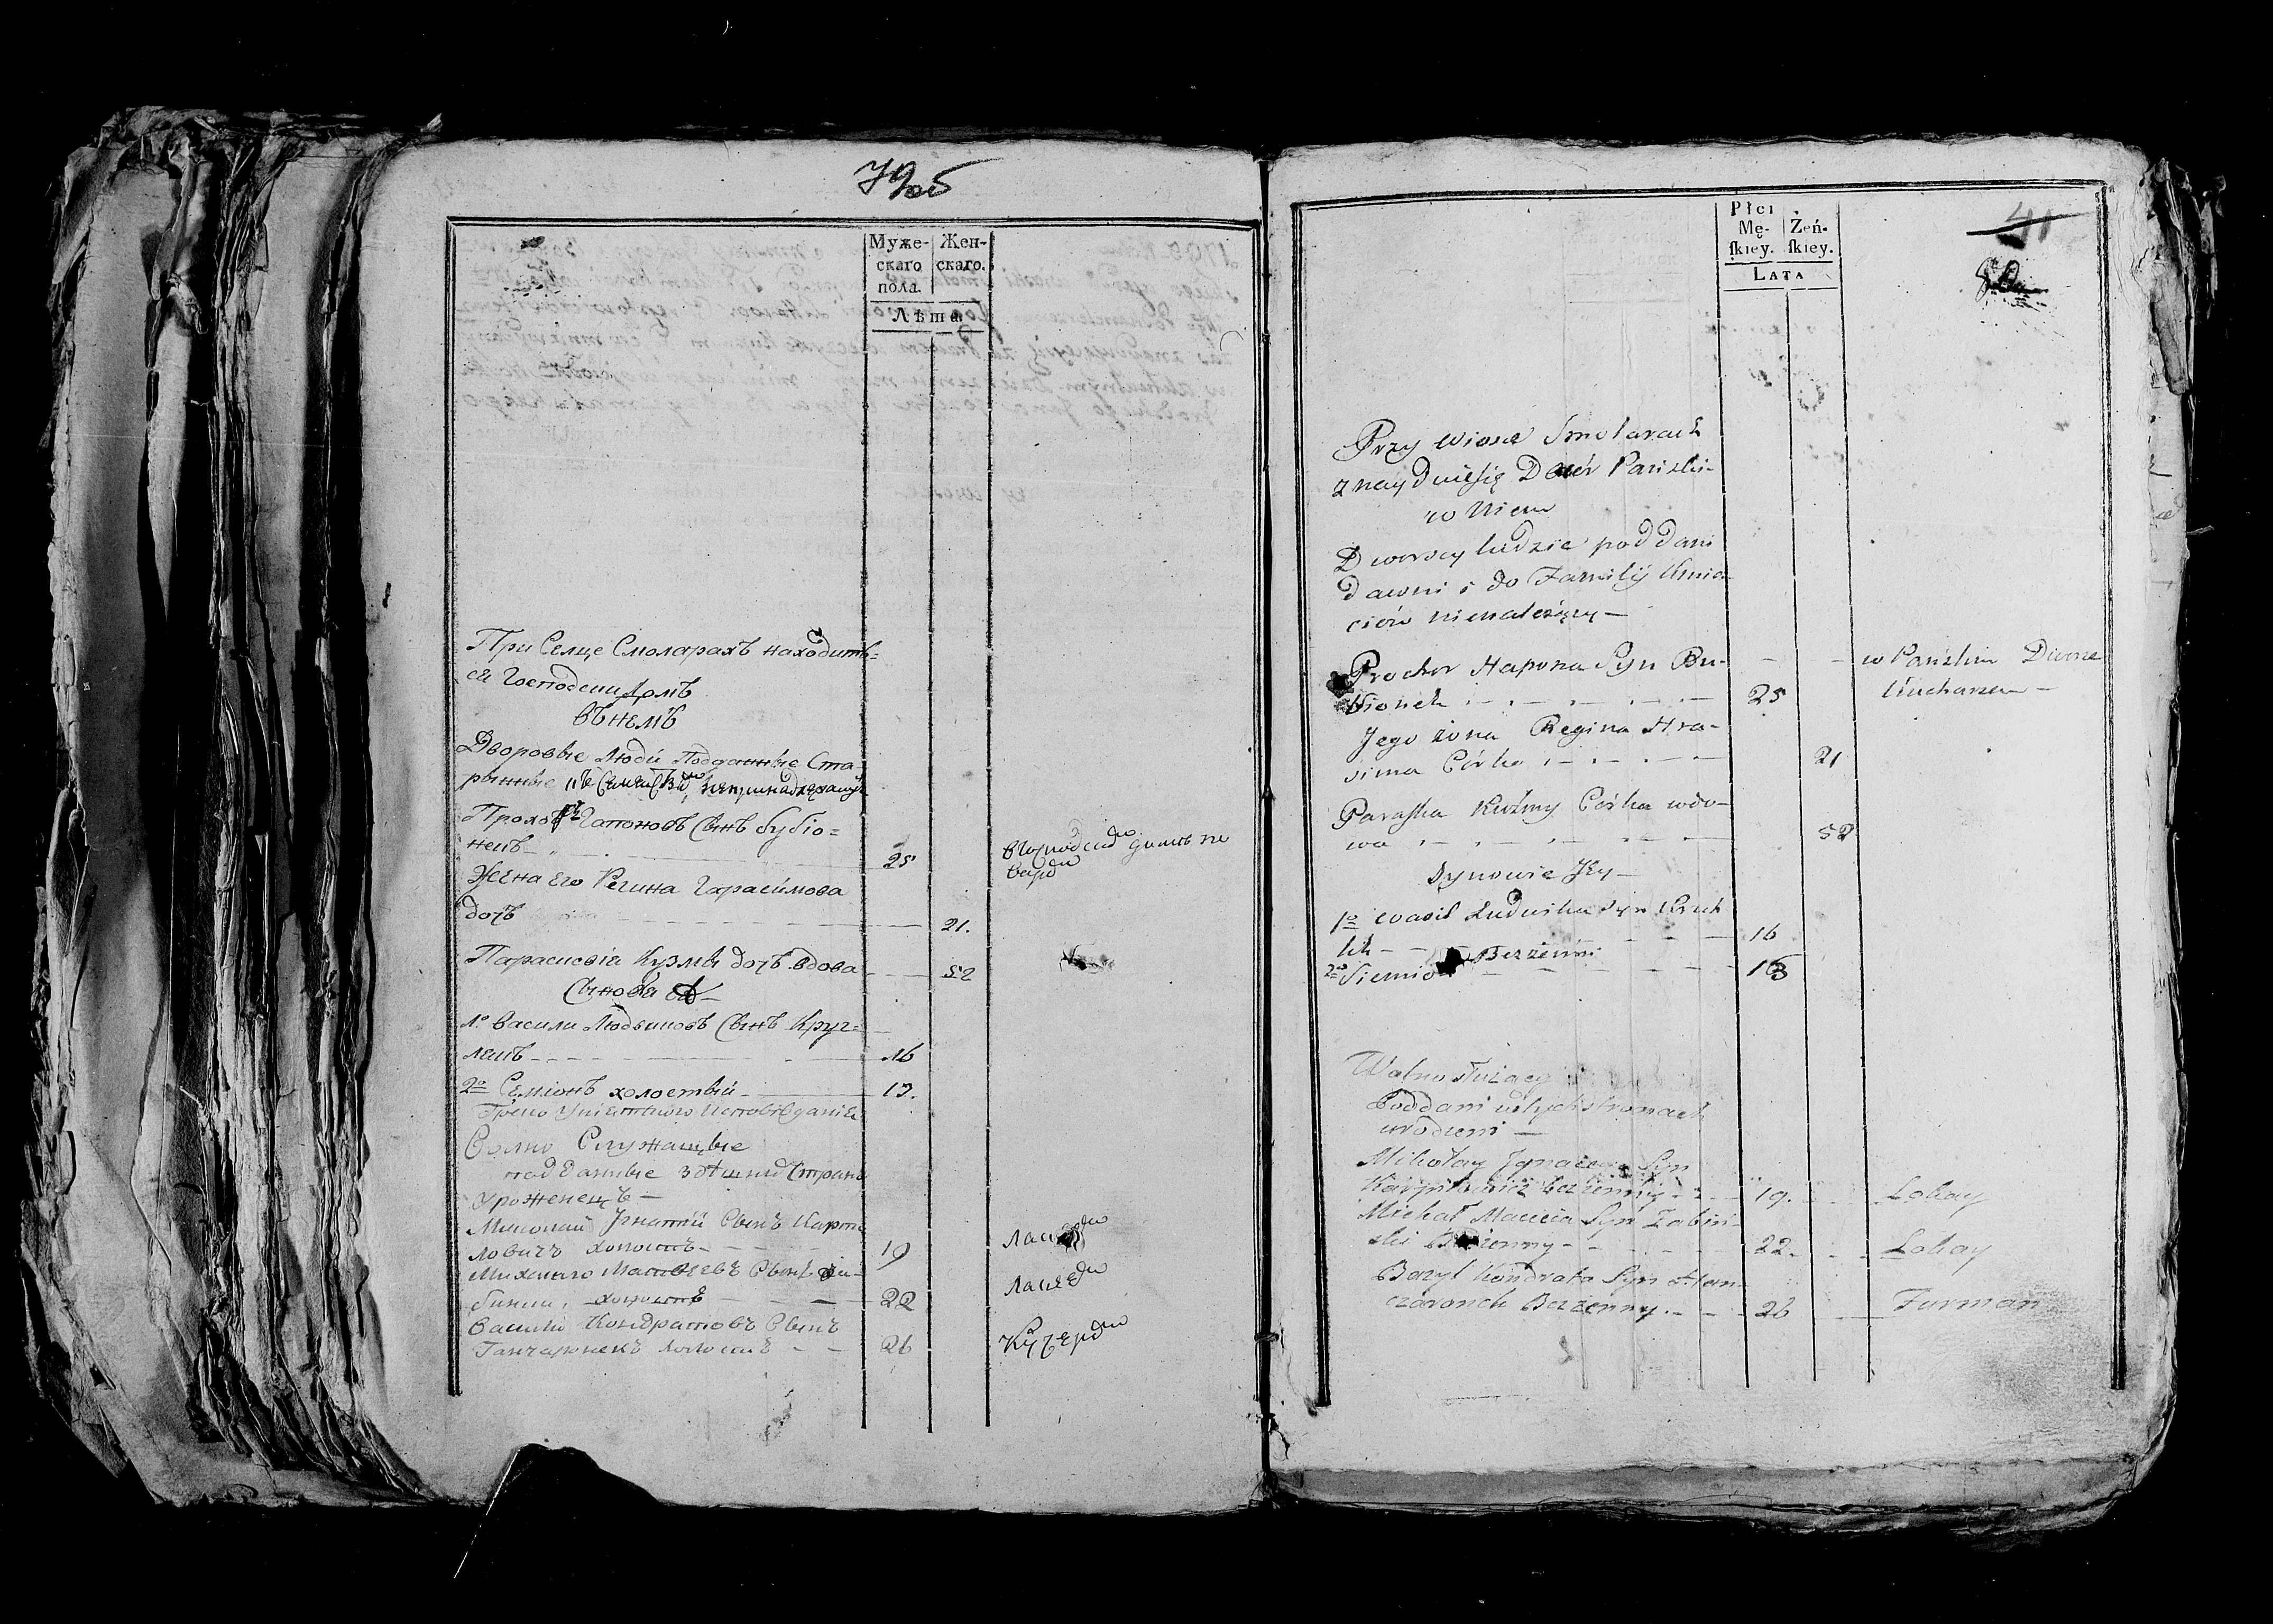 79об
Муже-
скаго
пола.
Жен-
скаго.
Лѣта.
При Селце Смоларахъ находить-
ся Господски Домъ
въ немъ
Дворовые Люди Подданные Ста-
рынные
Прохоръ Гапоновъ Сынъ Бубіо-
некъ 25
Жена Его Регина Гарасимова
дочъ 21.
Параскевія Кузмы дочъ вдова 52
Сынова
1º Васили Людвиковъ Сынъ Круг-
ликъ 16
2º Семіонъ холостый 13.
Греко Уніятскаго Исповѣданія
Волно Служащые
подданные здѣшнид Стран
Уроженецъ
Миколай Игнатій Сынъ Карпи
ловичъ холостъ 19 Лакей
Михайло Матвеевъ Сынъ
холостъ 22 Лакей
Василіи Кондратовъ Сынъ
Ганчаронекъ холостъ 26 Кучеръ
Płci
Mę-
ſkiey.
Żeń-
ſkiey.
LATA
41
80
Przy wiosce Smolarach
znayduiesię Dwór Pański
w Niem
Dworscy ludzie poddani
dawni i do Familij Kmie-
ciów nienależący —
Prochor Hapona Syn Bu- w Pańskim Dworze
bionek 25 Kucharzem —
Jego żona Regina Hra-
sima Córka 21
Paraska Kuźmy Córka wdo-
wa 52
Synowie Jey —
1º Wasil Ludwika Syn Kruh
lik 16
2º Siemion Bezżenni 13
Wolno służący
Poddani w tych stronach
urodzeni —
Mikołay Ignacego Syn
Karpiłowicz bezżenny 19. Lokay
Michał Macieia Syn Żabiń-
ski Bezżenny 22. Lokay
Bazyl Kondrata Syn Han-
czaronek Bezżenny. 26 Furman